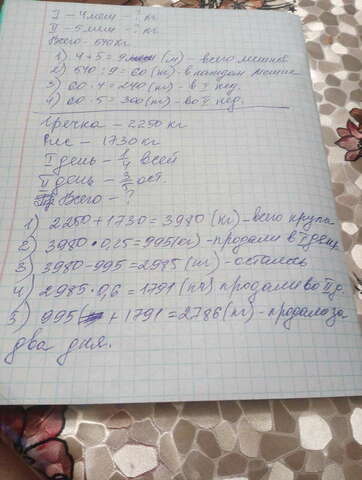 I - 4 меш - ? кг
II - 5 меш - ? кг
Всего - 540 кг
1) 4 + 5 = 9 (м) - всего мешков
2) 540 : 9 = 60 (кг) - в каждом мешке
3) 60 · 4 = 240 (кг) - в I пед.
4) 60 · 5 = 300 (кг) - во II пед.
Гречка - 2250 кг
Рис - 1730 кг
I день - 1/4 всей
II день - 3/5 ост.
Всего - ?
1) 2250 + 1730 = 3980 (кг) - всего крупы
2) 3980 · 0,25 = 995 (кг) - продали в I день
3) 3980 - 995 = 2985 (кг) - осталось
4) 2985 · 0,6 = 1791 (кг) продали во II д.
5) 995 + 1791 = 2786 (кг) - продали за
два дня.